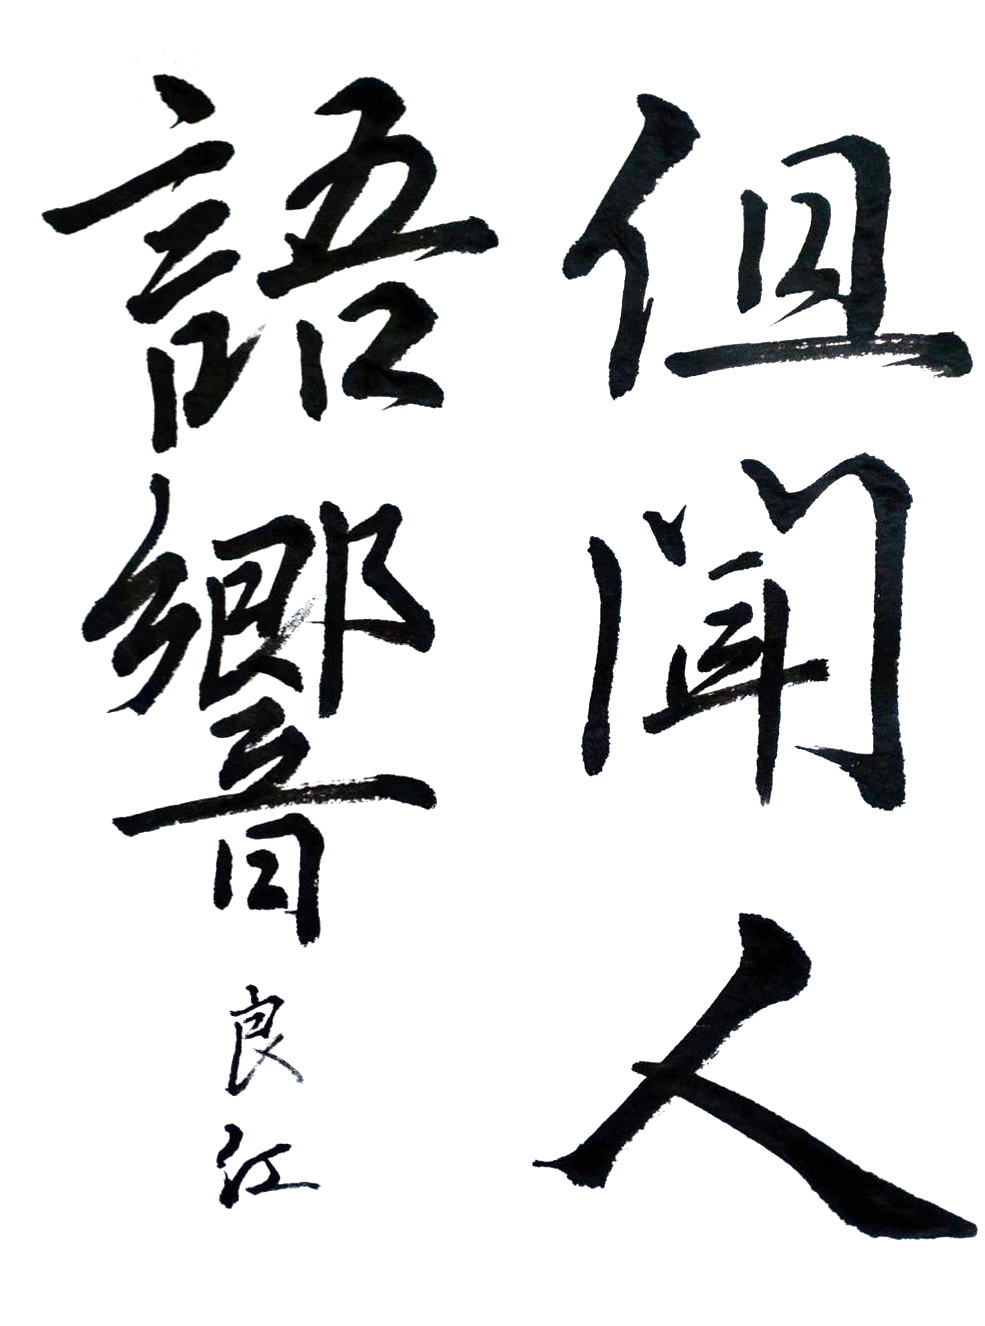 但聞人
語響
良江